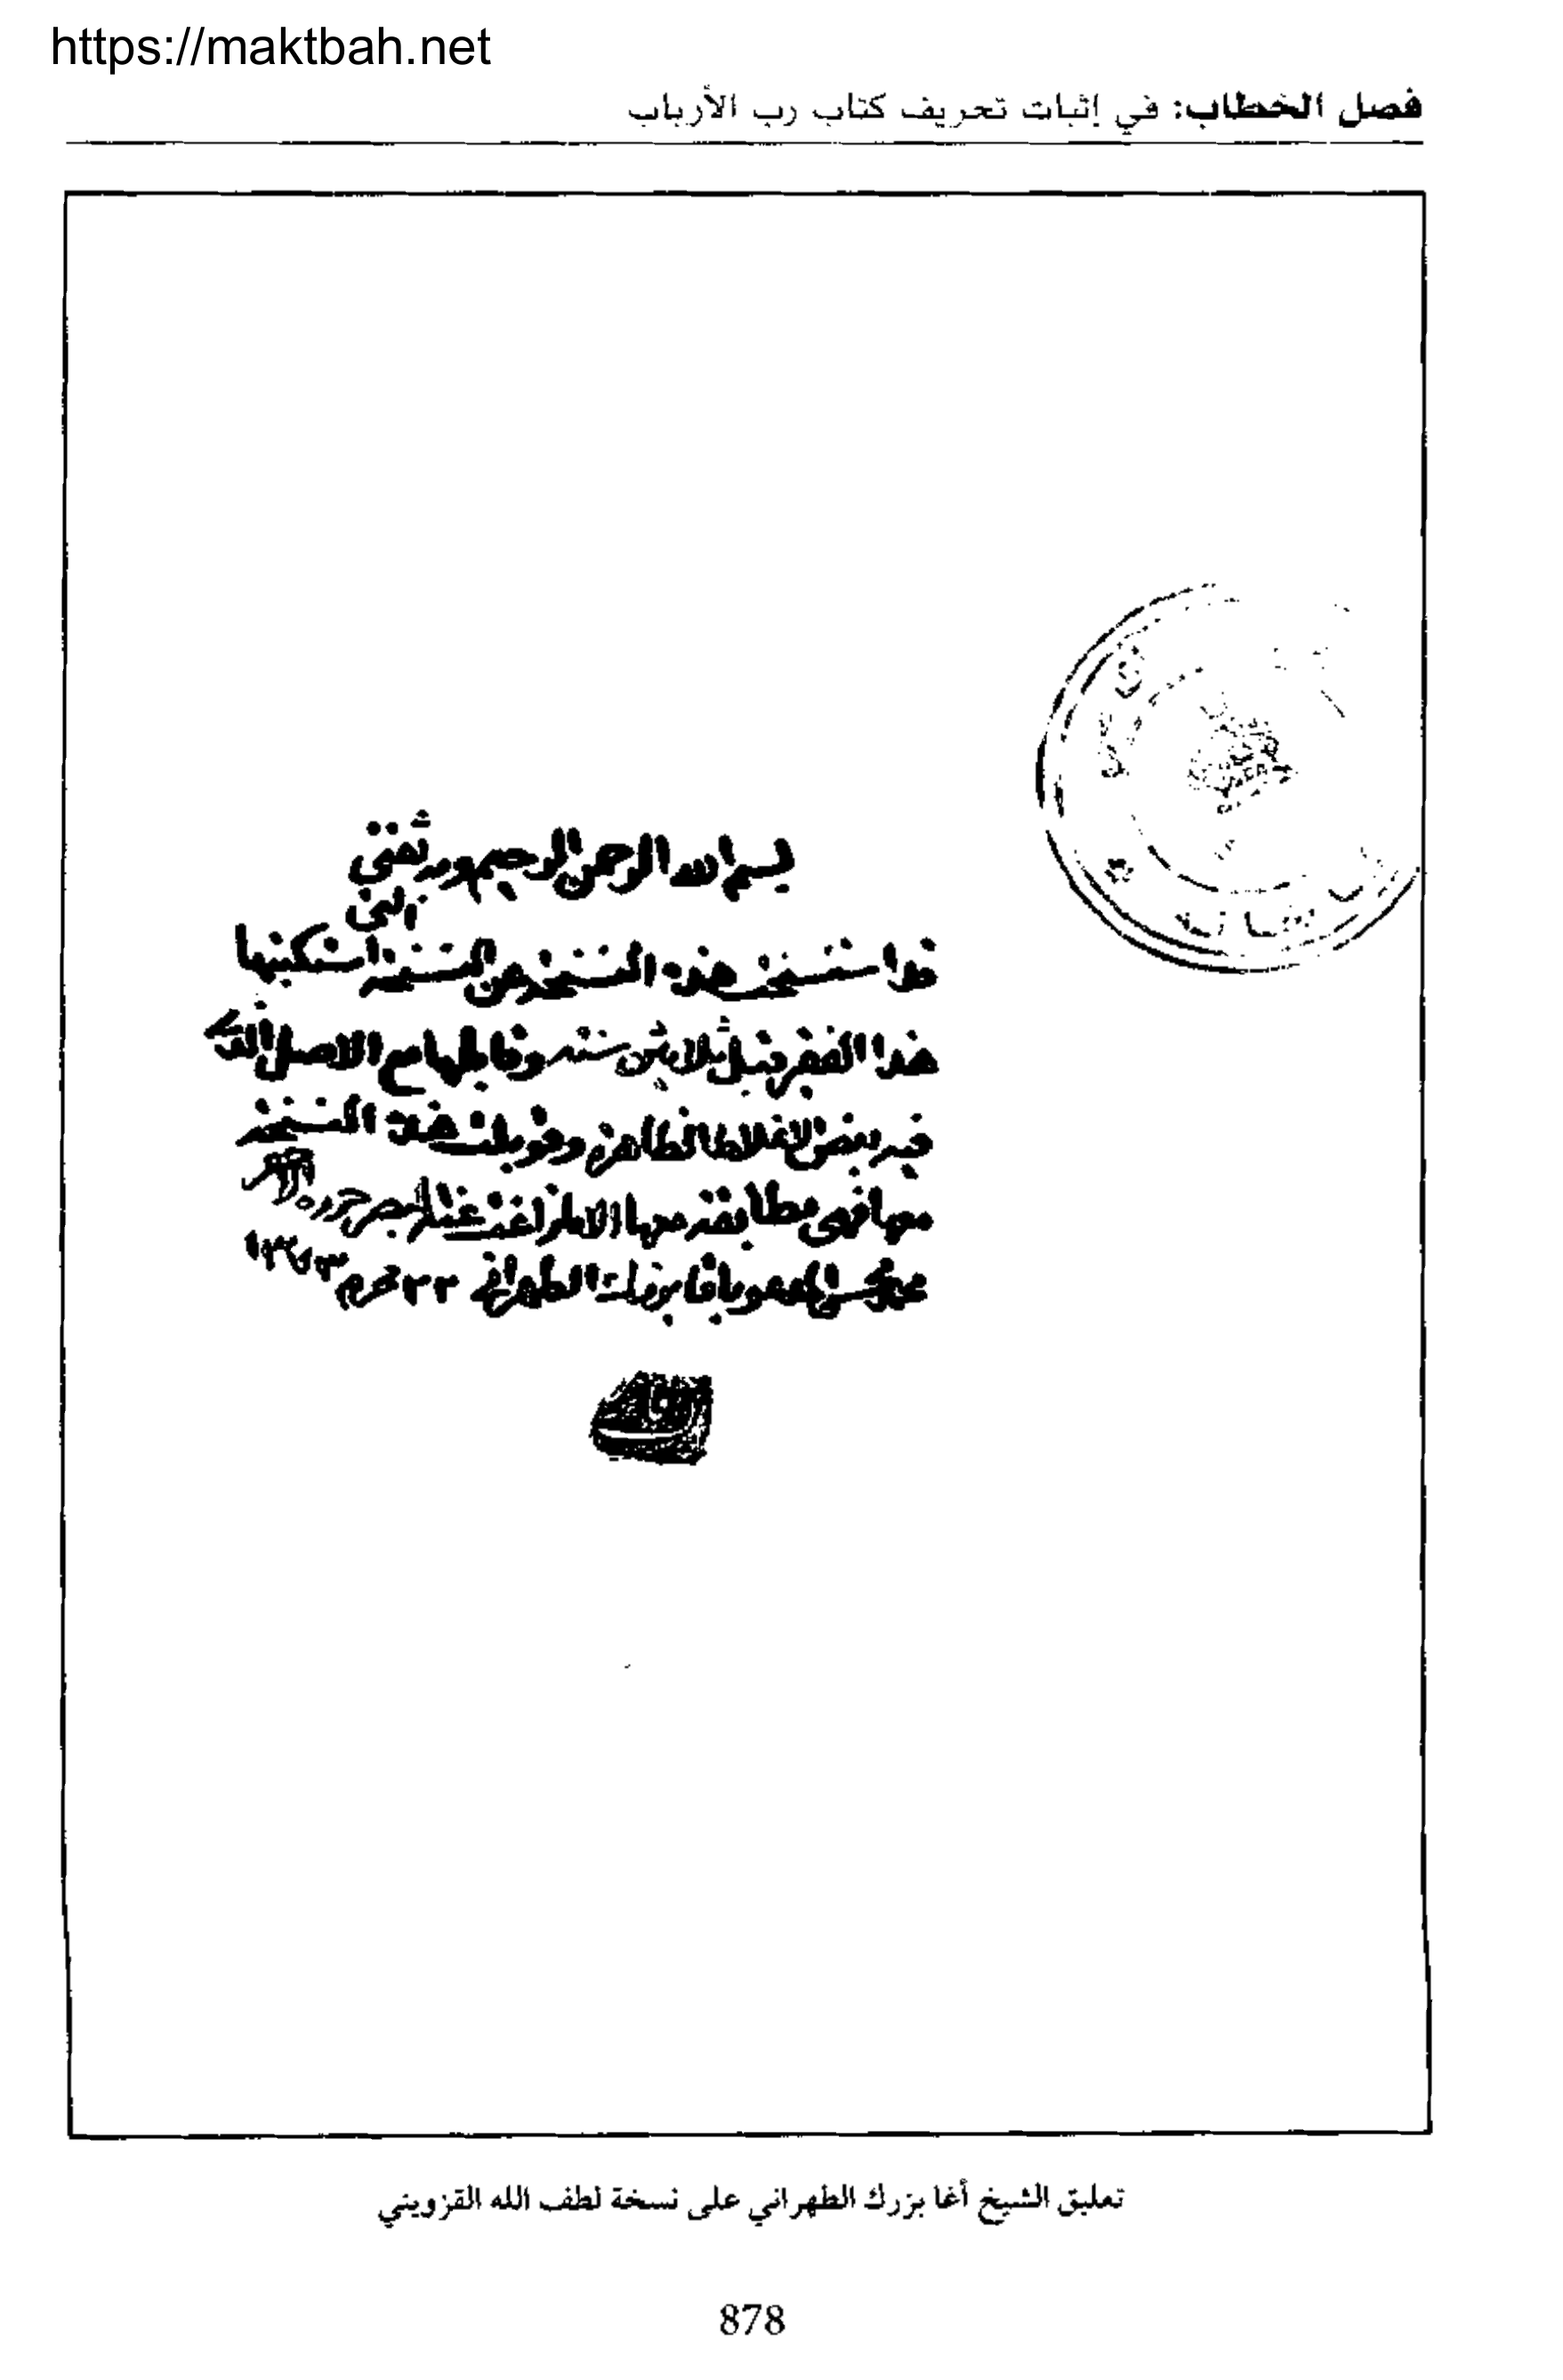 https://maktbah.net
فصل الخطاب: في إثبات تحريف كتاب رب الأرباب
بسم الله الرحمن الرحيم وبه ثقتي
قد استنسخ هذه النسخة من النسخة التي استكتبها
هذا الفقير قبل ثلاثين سنة وقابلها مع الاصل الذي
فيه بعض الاغلاط الظاهرة وقوبلت هذه النسخة
معها فهي مطابقة معها الا ما زاغت عنه
المدعو بآقا بزرك الطهراني ٢٢ محرم
تعليق الشيخ أغا بزرك الطهراني على نسخة لطف الله القزويني
878